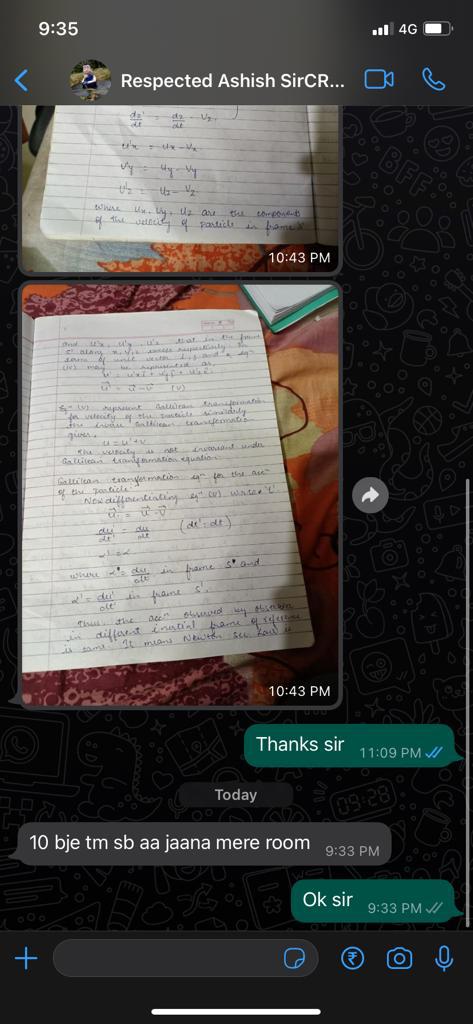 9:35
4G
Respected Ashish SirCR...
dz' = dz - Vz
dt dt
u'x = ux-Vx
u'y = uy-Vy
u'z = uz- Vz
where Ux, Uy, Uz are the components
of the velocity of particle in frame S
10:43 PM
and u'x, u'y, u'z that in the frame
S' along x, y, z respectively. In
terms of unit vector i, j and k eqn
(iv) may be represented as,
u' = u - v (v)
Eqn (v) represent Galilean transformation
for velocity of the particle similarly
the inverse Galilean transformation
gives,
u = u' + v
The velocity is not invariant under
Galilean transformation equation.
Galilean transformation eqn for the accn
of the particle:
Now differentiating eqn (v) w.r.to 't'
u' = u - v
du' = du (dt'=dt)
dt' dt
a' = a
where a = du in frame S and
dt
a' = du' in frame S'.
dt'
Thus, the accn observed by observers
in different inertial frame of reference
is same. It means Newton sec law is
10:43 PM
Thanks sir 11:09 PM
Today
10 bje tm sb aa jaana mere room 9:33 PM
Ok sir 9:33 PM